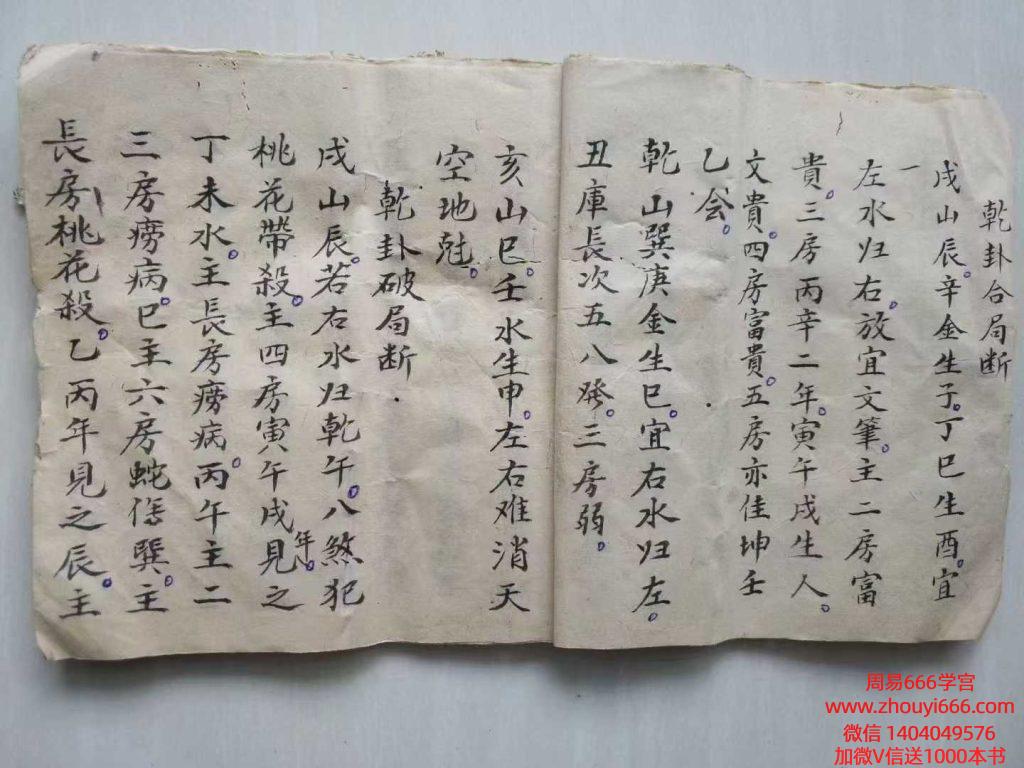 乾卦合局断
戌山辰。辛金生子。丁巳生酉。宜
一
左水归右。放宜文筆。主二房富
貴。三房丙辛二年。寅午戌生人。
文貴。四房富貴。五房亦佳坤壬
乙会。
乾山巽庚金生巳。宜右水归左。
丑庫長次五八發。三房弱。
亥山巳。壬水生申。左右难消天
空地尅。
乾卦破局断
戌山辰。若右水归乾午。八煞犯
桃花帶殺。主四房寅午戌年。見之
丁未水。主長房癆病。丙午主二
三房癆病。巳主六房蛇傷。巽。主
長房桃花殺。乙丙年見之辰。主
周易666学宫
www.zhouyi666.com
微信 1404049576
加微V信送1000本书